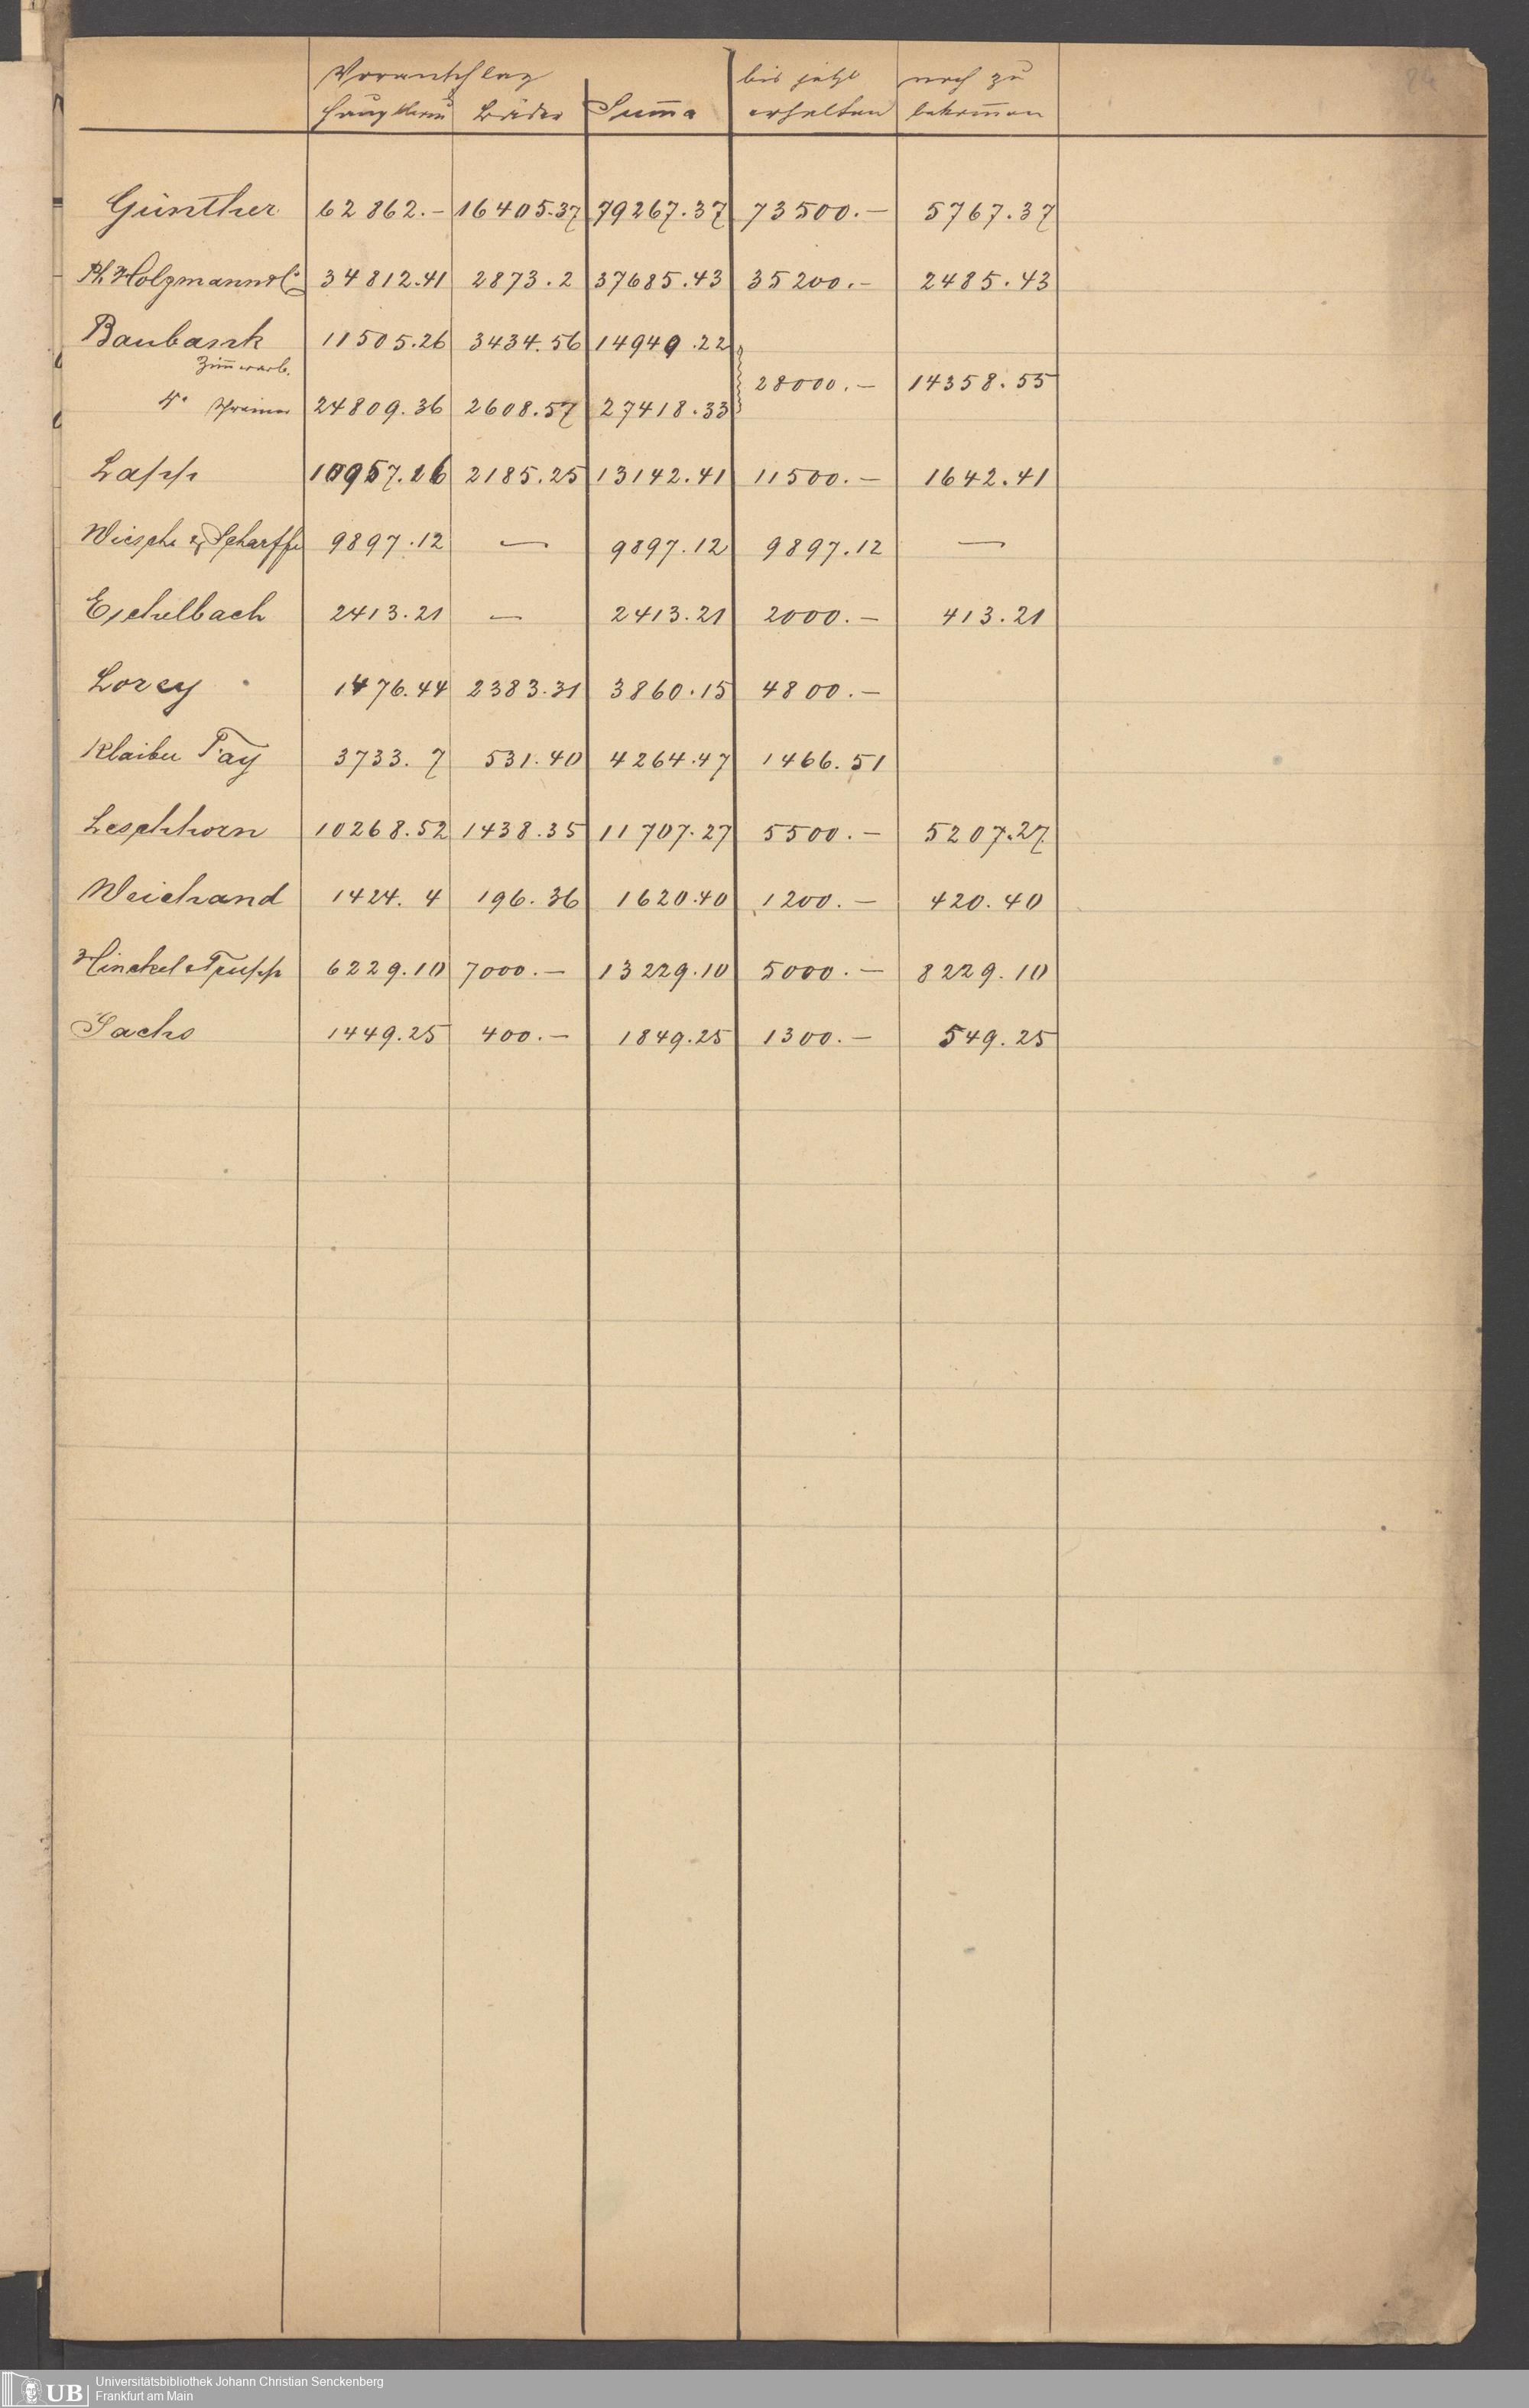 84
Voranschlag bis jetzt noch zu
Hauptkreis Bäder Suma erhalten bekomen
Günther 62862.- 16405.37 79267.37 73500.- 5767.37
Ph. Holzmann & Co 34812.41 2873.2 37685.43 35200.- 2485.43
Baubank 11505.26 3434.56 14940.22
Zimerarb. 28000.- 14358.55
do Schreiner 24809.36 2608.57 27418.33
Lapp 10957.16 2185.25 13142.41 11500.- 1642.41
Wiesche & Scharffe 9897.12 — 9897.12 9897.12 —
Eichelbach 2413.21 — 2413.21 2000.- 413.21
Lorey 1476.44 2383.31 3860.15 4800.-
Klaiber Fay 3733.7 531.40 4264.47 1466.51
Leschhorn 10268.52 1438.35 11707.27 5500.- 5207.27
Weichand 1424.4 196.36 1620.40 1200.- 420.40
Hinckel & Trupp 6229.10 7000.- 13229.10 5000.- 8229.10
Sachs 1449.25 400.- 1849.25 1300.- 549.25
UB Universitätsbibliothek Johann Christian Senckenberg
Frankfurt am Main